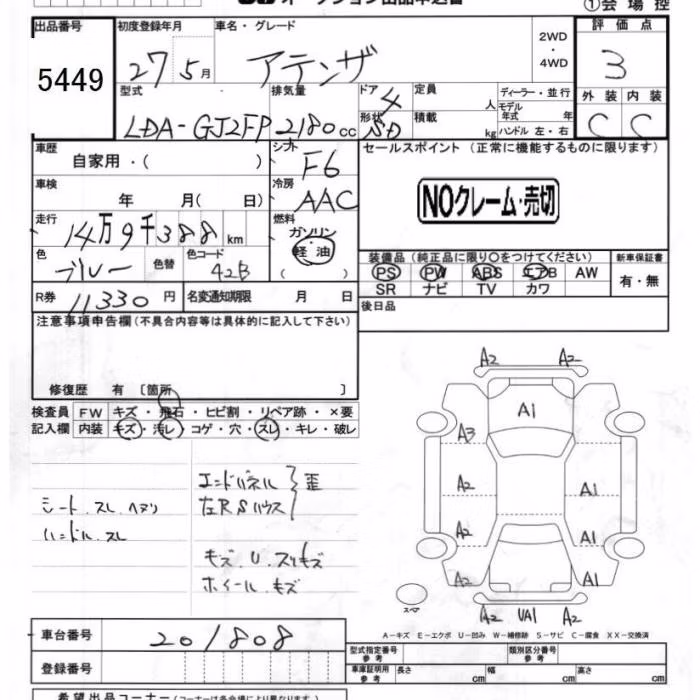 オークション出品申込書
①会場控
出品番号 初度登録年月 車名・グレード 評価点
5449 27 5月 アテンザ 2WD・4WD 3
型式 排気量 ドア 4 定員 人 ディーラー・並行 外装 内装
LDA-GJ2FP 2180cc 形状 SD 積載 kg モデル年式 年 ハンドル 左・右 C C
車歴 自家用・( ) シフト F6 セールスポイント (正常に機能するものに限ります)
車検 年 月( 日) 冷房 AAC NOクレーム・売切
走行 14万9千388km 燃料 ガソリン 軽油
色 ブルー 色替 色コード 42B 装備品 (純正品に限り○をつけてください) 新車保証書
PS PW ABS エアB AW 有・無
SR ナビ TV カワ
R券 11330円 名変通知期限 月 日 後日品
注意事項申告欄(不具合内容等は具体的に記入して下さい)
修復歴 有 [箇所 ]
検査員 FW キズ・飛石・ヒビ割・リペア跡・×要
記入欄 内装 キズ・汚レ・コゲ・穴・スレ・キレ・破レ
エンドパネル 歪
左RSハウス
シート スレ ヘタリ
ハンドル スレ
キズ.U.スリキズ
ホイール キズ
A2 A2
A1
A3
A2 A1
A2 A1
A2 A1
スペア
A2 UA1 A2
A-キズ E-エクボ U-凹み W-補修跡 S-サビ C-腐食 XX-交換済
車台番号 201808
型式指定番号 参考 類別区分番号 参考
登録番号 車庫証明用 参考 長さ cm 幅 cm 高さ cm
希望出品コーナー(コーナーは各会場により異なります)